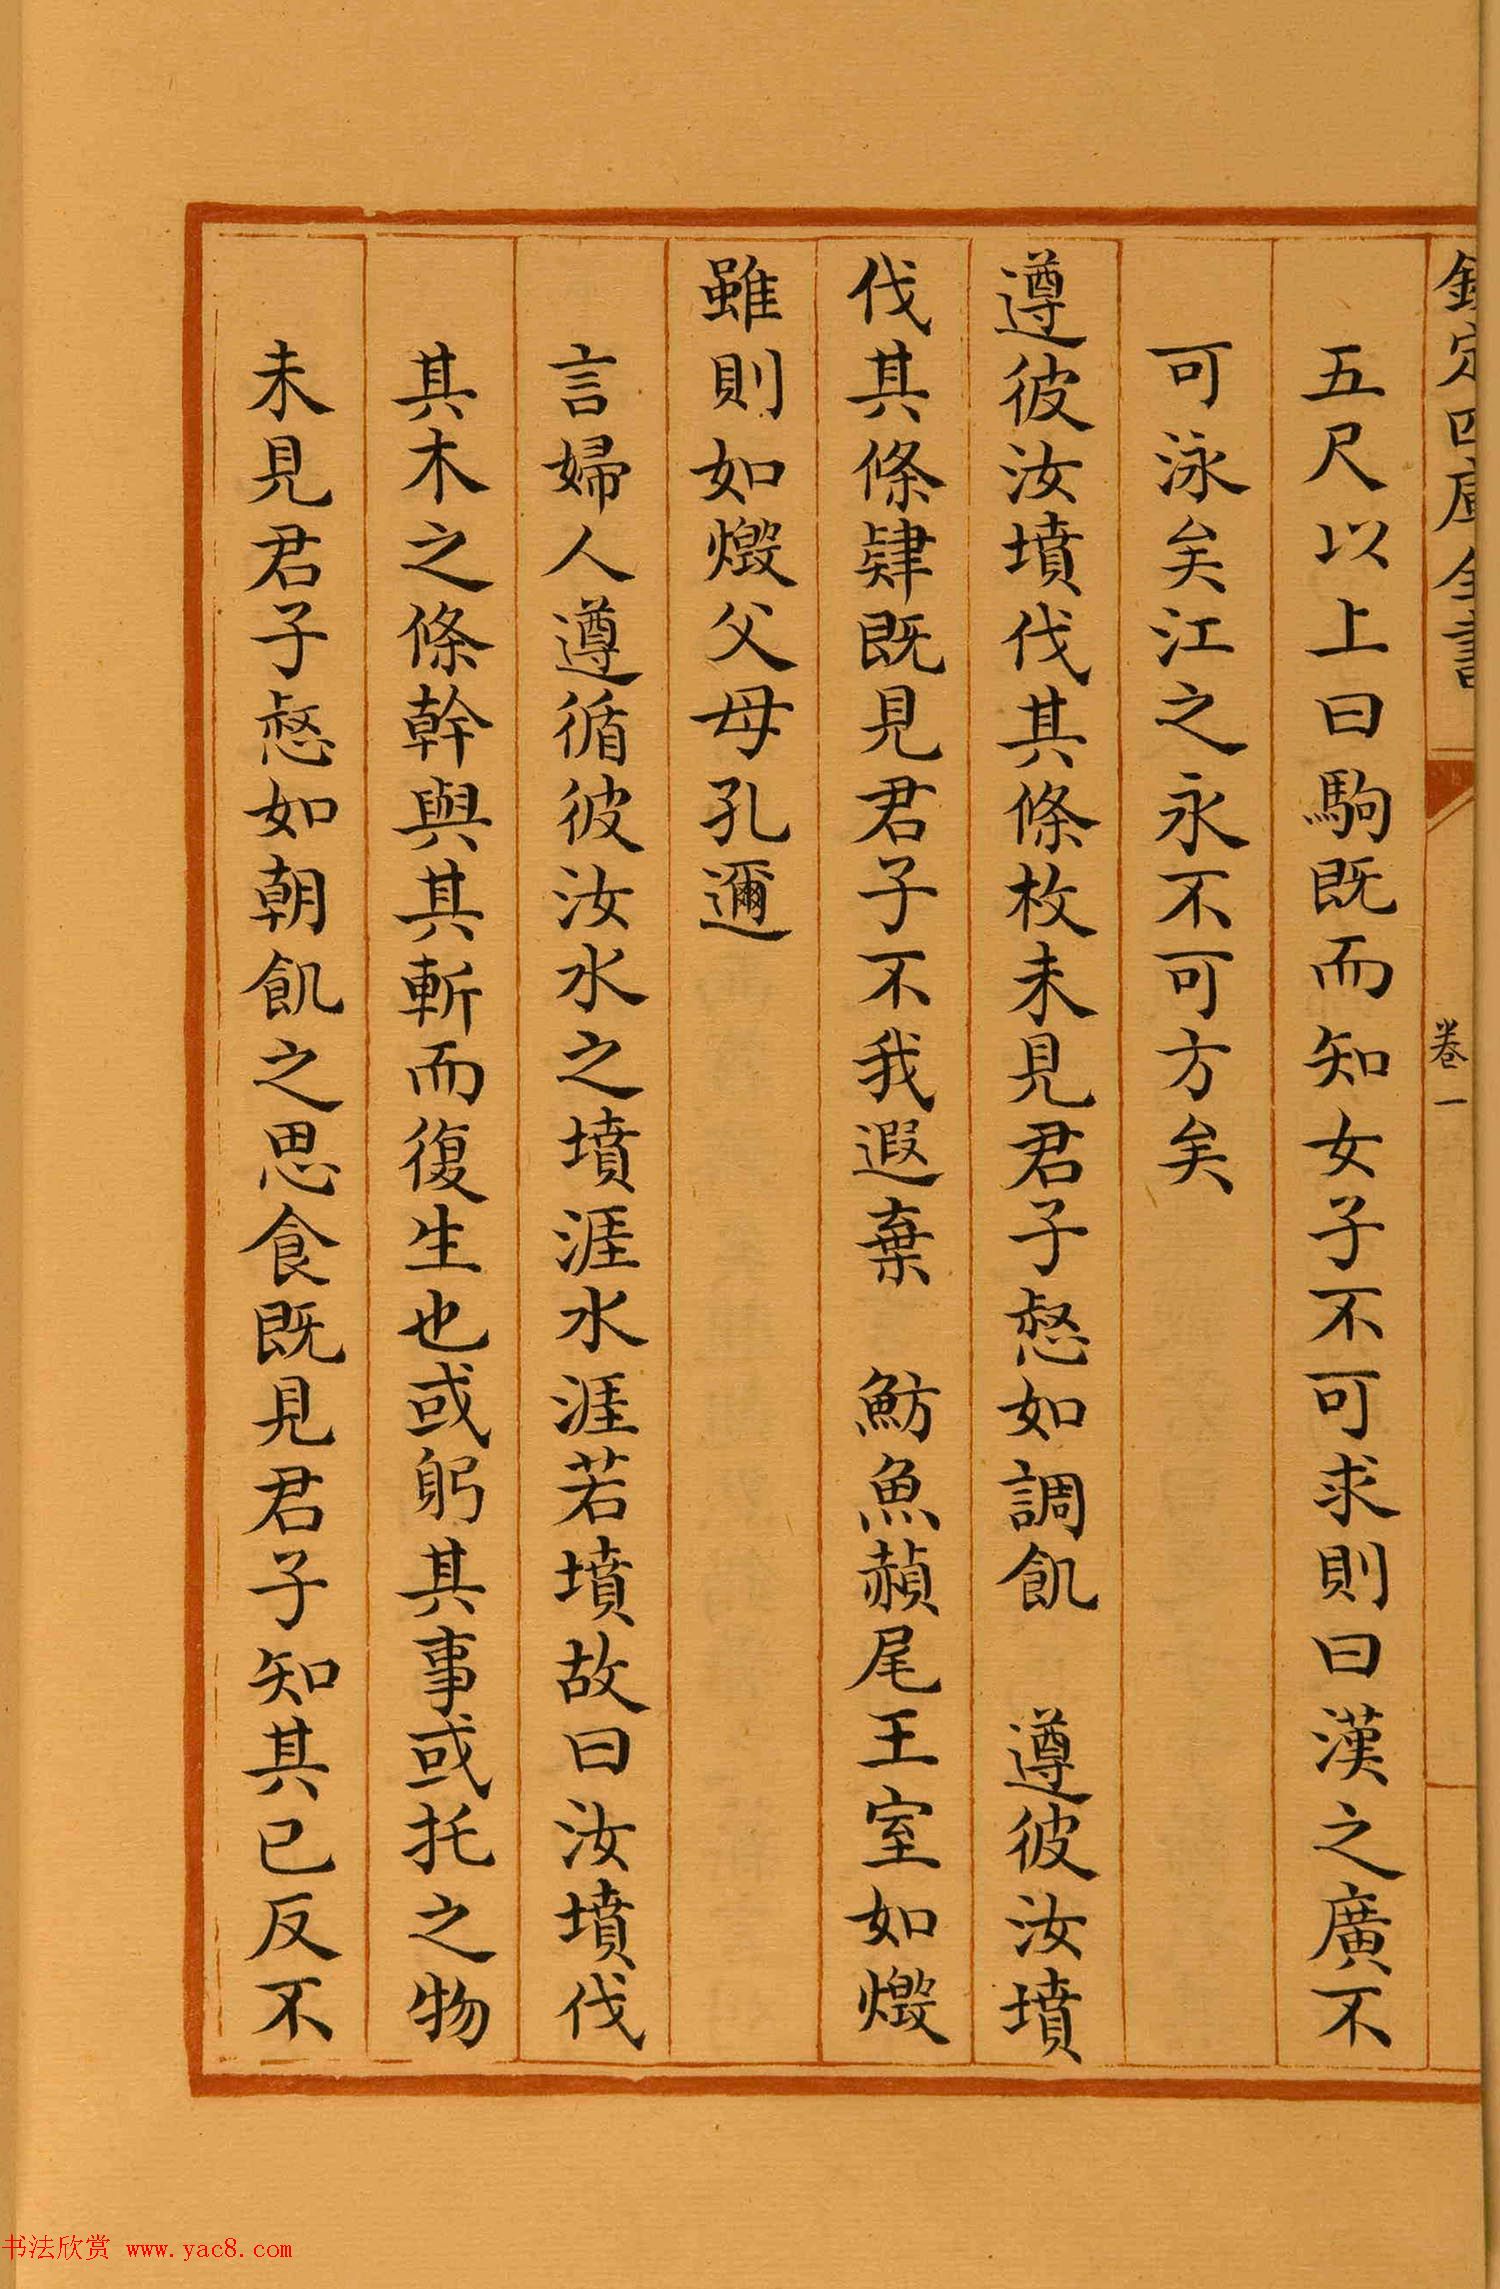 欽定四庫全書
卷一
五尺以上曰駒既而知女子不可求則曰漢之廣不
可泳矣江之永不可方矣
遵彼汝墳伐其條枚未見君子惄如調飢 遵彼汝墳
伐其條肄既見君子不我遐棄 魴魚赬尾王室如燬
雖則如燬父母孔邇
言婦人遵循彼汝水之墳涯水涯若墳故曰汝墳伐
其木之條幹與其斬而復生也或躬其事或托之物
未見君子惄如朝飢之思食既見君子知其已反不
书法欣赏 www.yac8.com